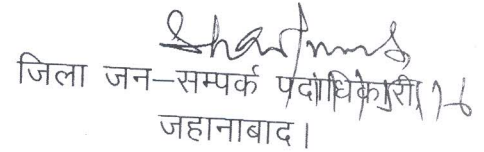 जिला जन–सम्पर्क पदाधिकारी
जहानाबाद।